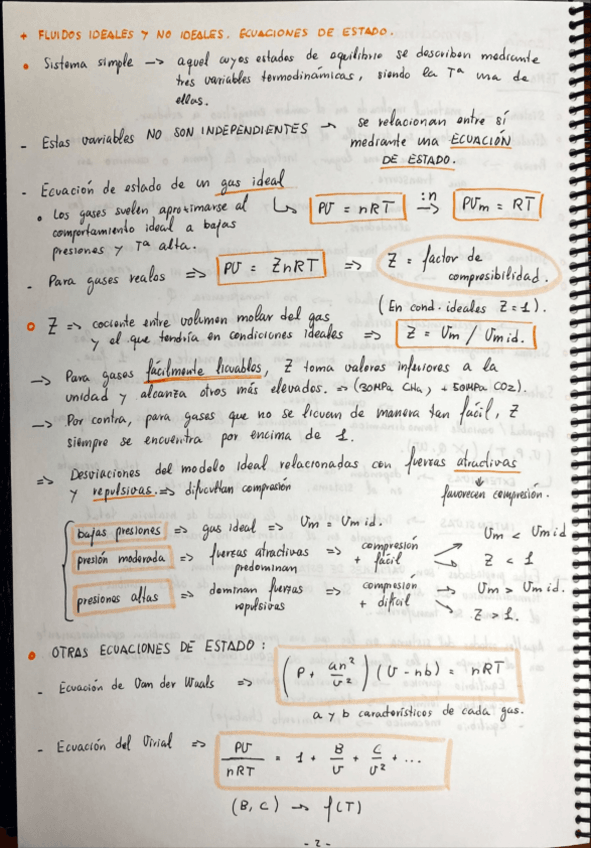 + FLUIDOS IDEALES Y NO IDEALES. ECUACIONES DE ESTADO.
• Sistema simple —> aquel cuyos estados de equilibrio se describen mediante
tres variables termodinámicas, siendo la Tª una de
ellas.
- Estas variables NO SON INDEPENDIENTES → se relacionan entre sí
mediante una ECUACIÓN
DE ESTADO.
- Ecuación de estado de un gas ideal
↳ PV = nRT :n —> PVm = RT
• Los gases suelen aproximarse al
comportamiento ideal a bajas
presiones y Tª alta.
- Para gases reales => PV = ZnRT => Z = factor de
compresibilidad.
(En cond. ideales Z = 1).
• Z => cociente entre volumen molar del gas
y el que tendría en condiciones ideales => Z = Vm / Vmid.
—> Para gases fácilmente licuables, Z toma valores inferiores a la
unidad y alcanza otros más elevados. => (30MPa CH4, +50MPa CO2).
—> Por contra, para gases que no se licuan de manera tan fácil, Z
siempre se encuentra por encima de 1.
=> Desviaciones del modelo ideal relacionadas con fuerzas atractivas
y repulsivas. => dificultan compresión
↓
favorecen compresión.
bajas presiones => gas ideal => Vm = Vmid.
presión moderada => fuerzas atractivas
predominan => compresión
+ fácil
Vm < Vmid
Z < 1
presiones altas => dominan fuerzas
repulsivas => compresión
+ difícil
→ Vm > Vmid.
Z > 1.
• OTRAS ECUACIONES DE ESTADO:
- Ecuación de Van der Waals => (P + an²/V²) (V - nb) = nRT
a y b característicos de cada gas.
- Ecuación del Virial => PV/nRT = 1 + B/V + C/V² + ...
(B, C) → f(T)
- 2 -